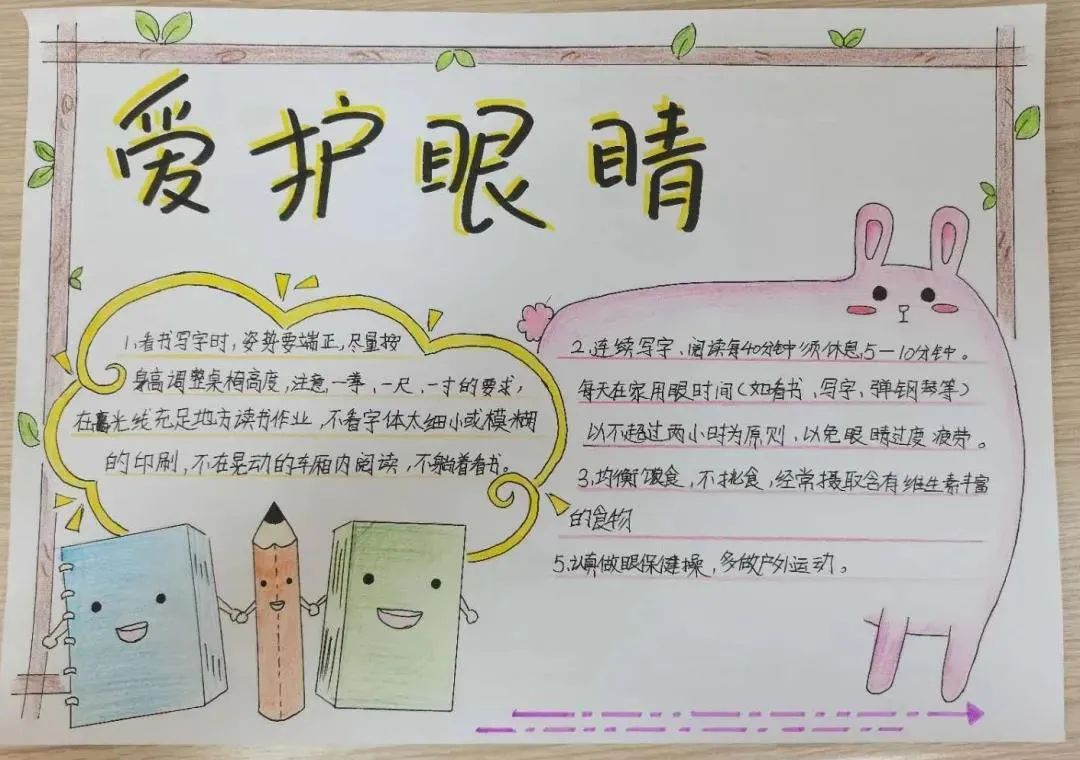 爱护眼睛
1.看书写字时，姿势要端正，尽量按
身高调整桌椅高度，注意一拳、一尺、一寸的要求，
在光线充足地方读书作业，不看字体太细小或模糊
的印刷，不在晃动的车厢内阅读，不躺着看书。
2.连续写字、阅读每40分钟须休息5—10分钟。
每天在家用眼时间（如看书、写字、弹钢琴等）
以不超过两小时为原则，以免眼睛过度疲劳。
3.均衡饮食，不挑食，经常摄取含有维生素丰富
的食物
5.认真做眼保健操，多做户外运动。